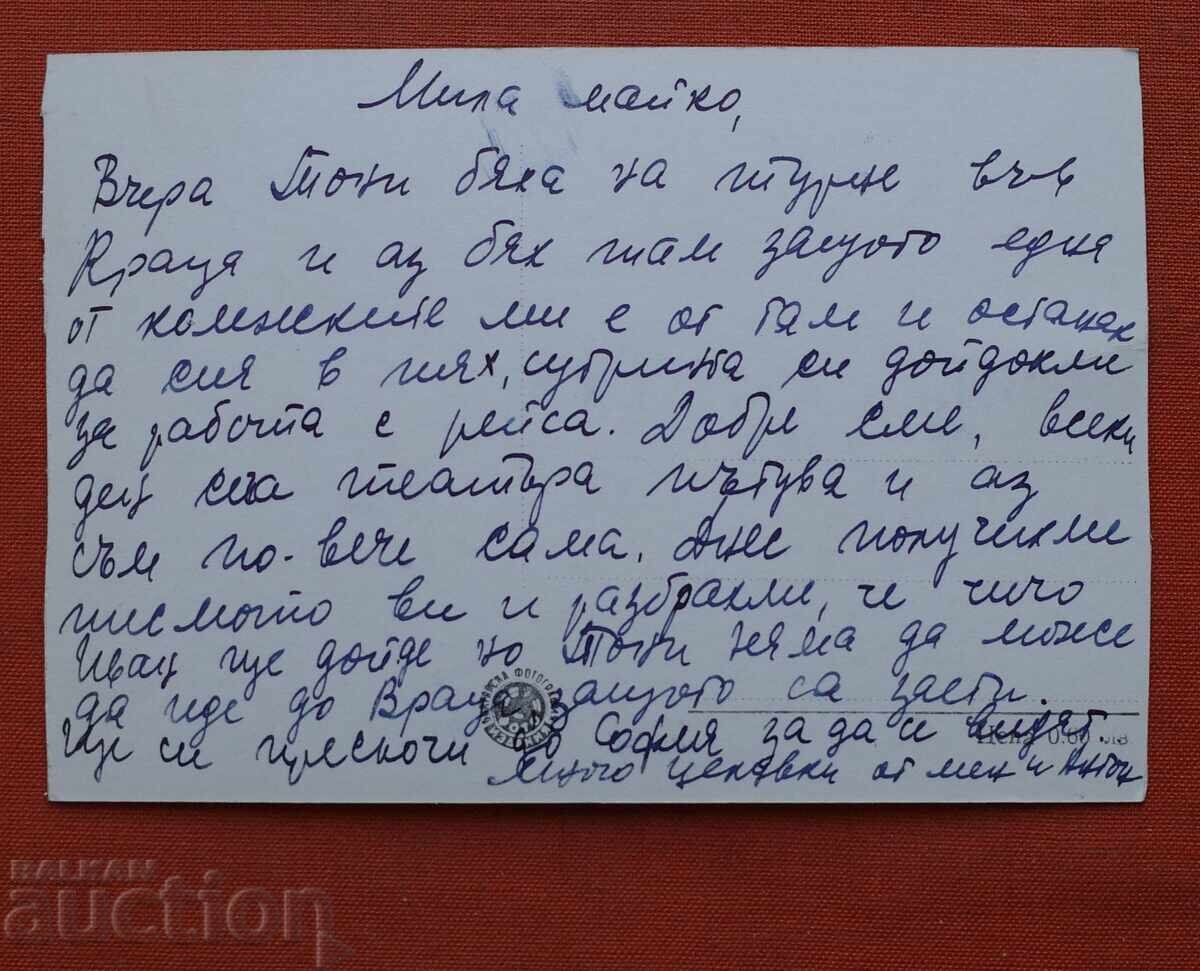 Мила майко,
Вчера Тони бяха на турне във
Враца и аз бях там защото една
от колежките ми е от там и останах
да спя в тях, сутринта си дойдохме
за работа с рейса. Добре сме, всеки
ден театъра пътува и аз
съм по-вече сама. Днес получихме
писмото ви и разбрахме, че чичо
Иван ще дойде но Тони няма да може
да иде до Враца защото са заети.
Ще си прескочи до София за да се видят.
Много целувки от мен и Антон
Цена 0.60 лв
БЪЛГАРСКА ФОТОГРАФИЯ
BALKAN
auction